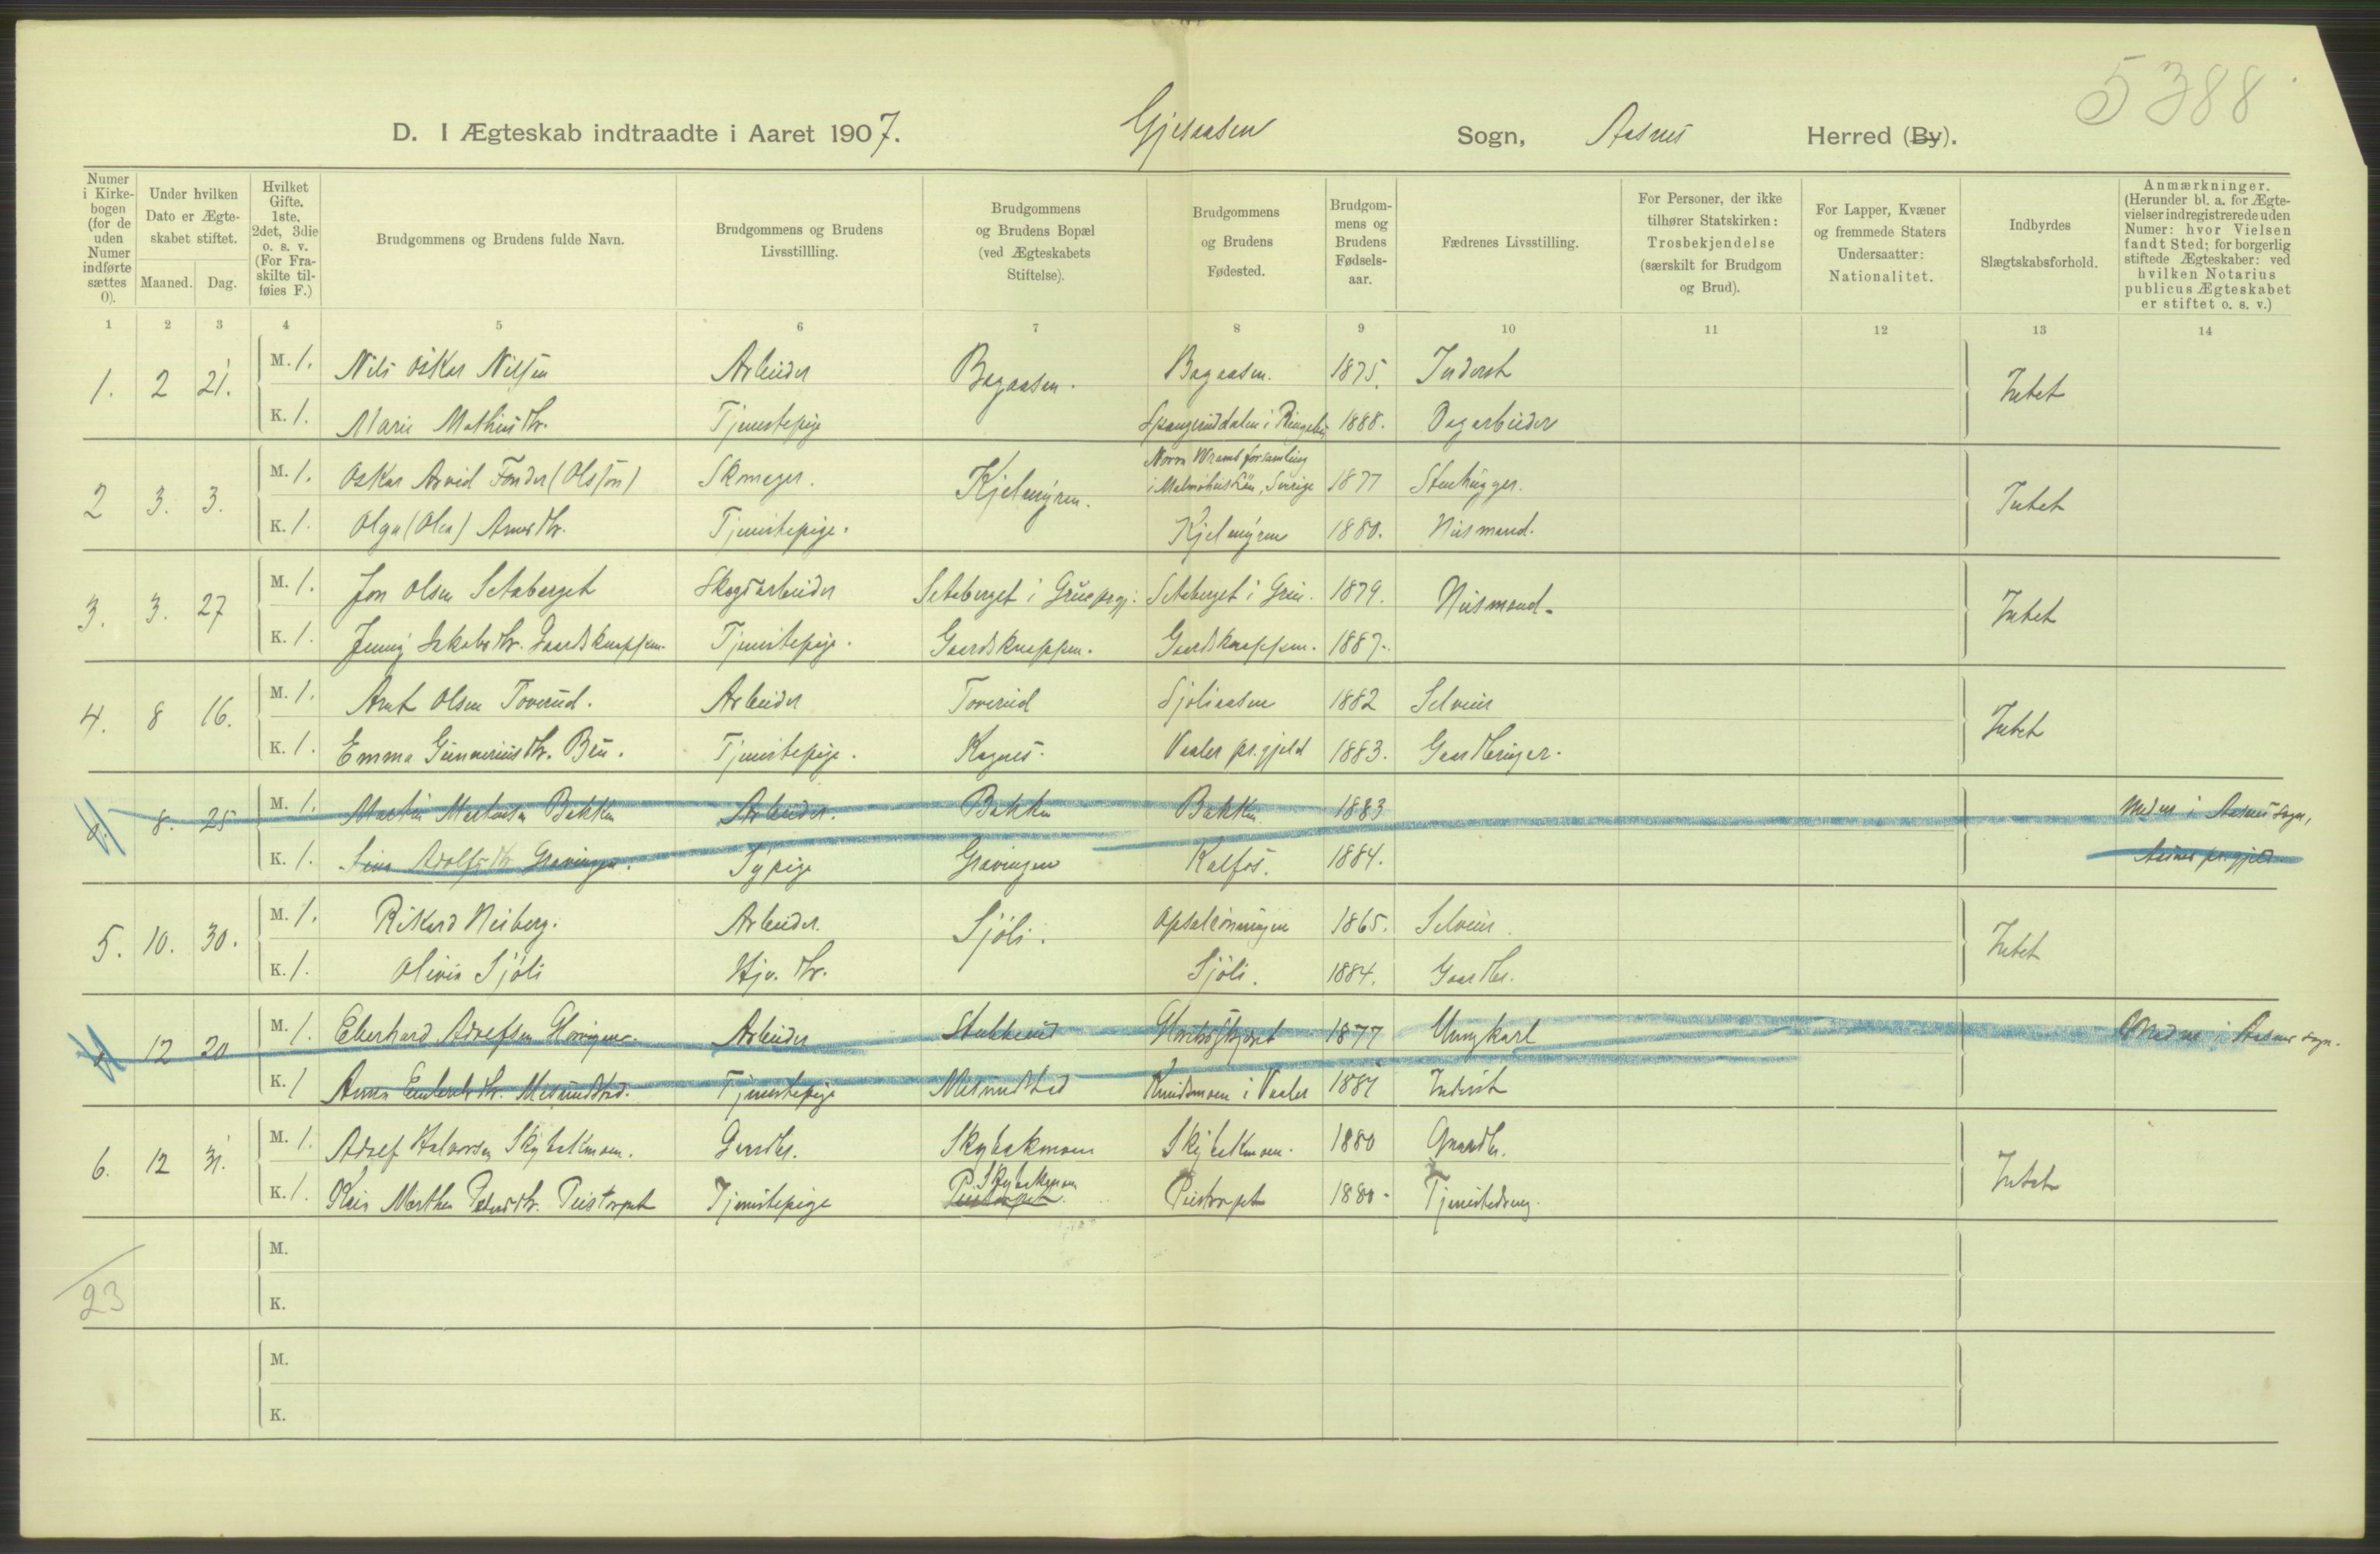 5388
D. I Ægteskab indtraadte i Aaret 1907. Gjesaasen Sogn, Aasnes Herred (By).
Numer i Kirke-bogen (for de uden Numer indførte sættes 0).
Under hvilken Dato er Ægte-skabet stiftet.
Maaned. Dag.
Hvilket Gifte. 1ste, 2det, 3die o. s. v. (For Fra-skilte til-føies F.)
Brudgommens og Brudens fulde Navn.
Brudgommens og Brudens Livsstillling.
Brudgommens og Brudens Bopæl (ved Ægteskabets Stiftelse).
Brudgommens og Brudens Fødested.
Brudgom-mens og Brudens Fødsels-aar.
Fædrenes Livsstilling.
For Personer, der ikke tilhører Statskirken: Trosbekjendelse (særskilt for Brudgom og Brud).
For Lapper, Kvæner og fremmede Staters Undersaatter: Nationalitet.
Indbyrdes Slægtskabsforhold.
Anmærkninger. (Herunder bl. a. for Ægte-vielser indregistrerede uden Numer: hvor Vielsen fandt Sted; for borgerlig stiftede Ægteskaber: ved hvilken Notarius publicus Ægteskabet er stiftet o. s. v.)
1 2 3 4 5 6 7 8 9 10 11 12 13 14
1. 2 21. M. 1. Nils Oskar Nilsen Arbeider Bagaasen. Bagaasen. 1875. Inderst Intet
K. 1. Marie Mathisdtr. Tjenestepige i Ringebu 1888. Dagarbeider
2 3. 3. M. 1. Oskar Arvid Fonder (Olsson) Skomager. Kjelmyren. Norra Wrams forsamling
i Malmöhus Län, Sverige 1877 Stenhugger. Intet
K. 1. Olga (Olea) Arnesdtr. Tjenestepige. Kjelmyren 1880. Husmand.
3. 3. 27 M. 1. Jon Olsen Sætaberget Skogsarbeider Sætaberget i Grue prgj. Sætaberget i Grue. 1879. Husmand. Intet
K. 1. Jenny Jakobsdtr. Gaardsknappen. Tjenestepige. Gaardsknappen. Gaardsknappen. 1887.
4. 8 16. M. 1. Arnt Olsen Toverud. Arbeider Toverud Sjøliaasen 1882 Selveier Intet
K. 1. Emma Gunneriusdtr. Bru. Tjenestepige. Kagnes. Vaaler pr.gjeld 1883. Gaardbruger.
8. 25 M. 1. Martin Martinsen Bakken Arbeider. Bakken Bakken 1883 Aasnes sogn,
K. 1. Adolfsdtr Gravingen. Sypige Gravingen Kalfos. 1884. Aasnes pr.gjeld.
5. 10. 30. M. 1. Rikard Neiberg. Arbeider. Sjöli. 1865. Selveier. Intet
K. 1. Olivia Sjöli Hjv. dtr. Sjöli. 1884. Gaardbr.
12 20 M. 1. Eberhard Adolfsen Arbeider Stubberud 1877 Ungkarl i Aasnes sogn.
K. 1 Anna Mesundstad. Tjenestepige Mesundstad Knudsmoen i Vaaler 1887 Inderst
6. 12 31. M. 1. Adolf Halvorsen Skybakmoen. Gaardbr. Skybakmoen Skybakmoen. 1880 Gaardbr. Intet
K. 1. Marthea Pedersdtr. Peistorpet Tjenestepige Skybakmoen
Peistorpet Peistorpet 1880. Tjenestedreng.
M.
23 K.
M.
K.